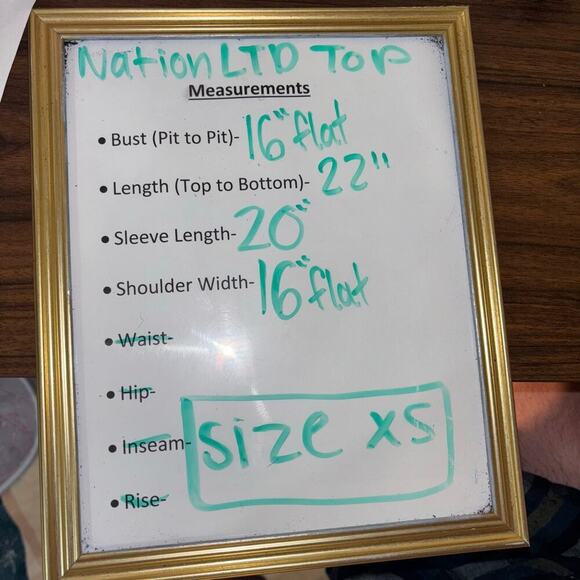 Nation LTD Top
Measurements
• Bust (Pit to Pit)- 16" flat
• Length (Top to Bottom)- 22"
• Sleeve Length- 20"
• Shoulder Width- 16" flat
• Waist-
• Hip-
• Inseam-
• Rise-
Size XS